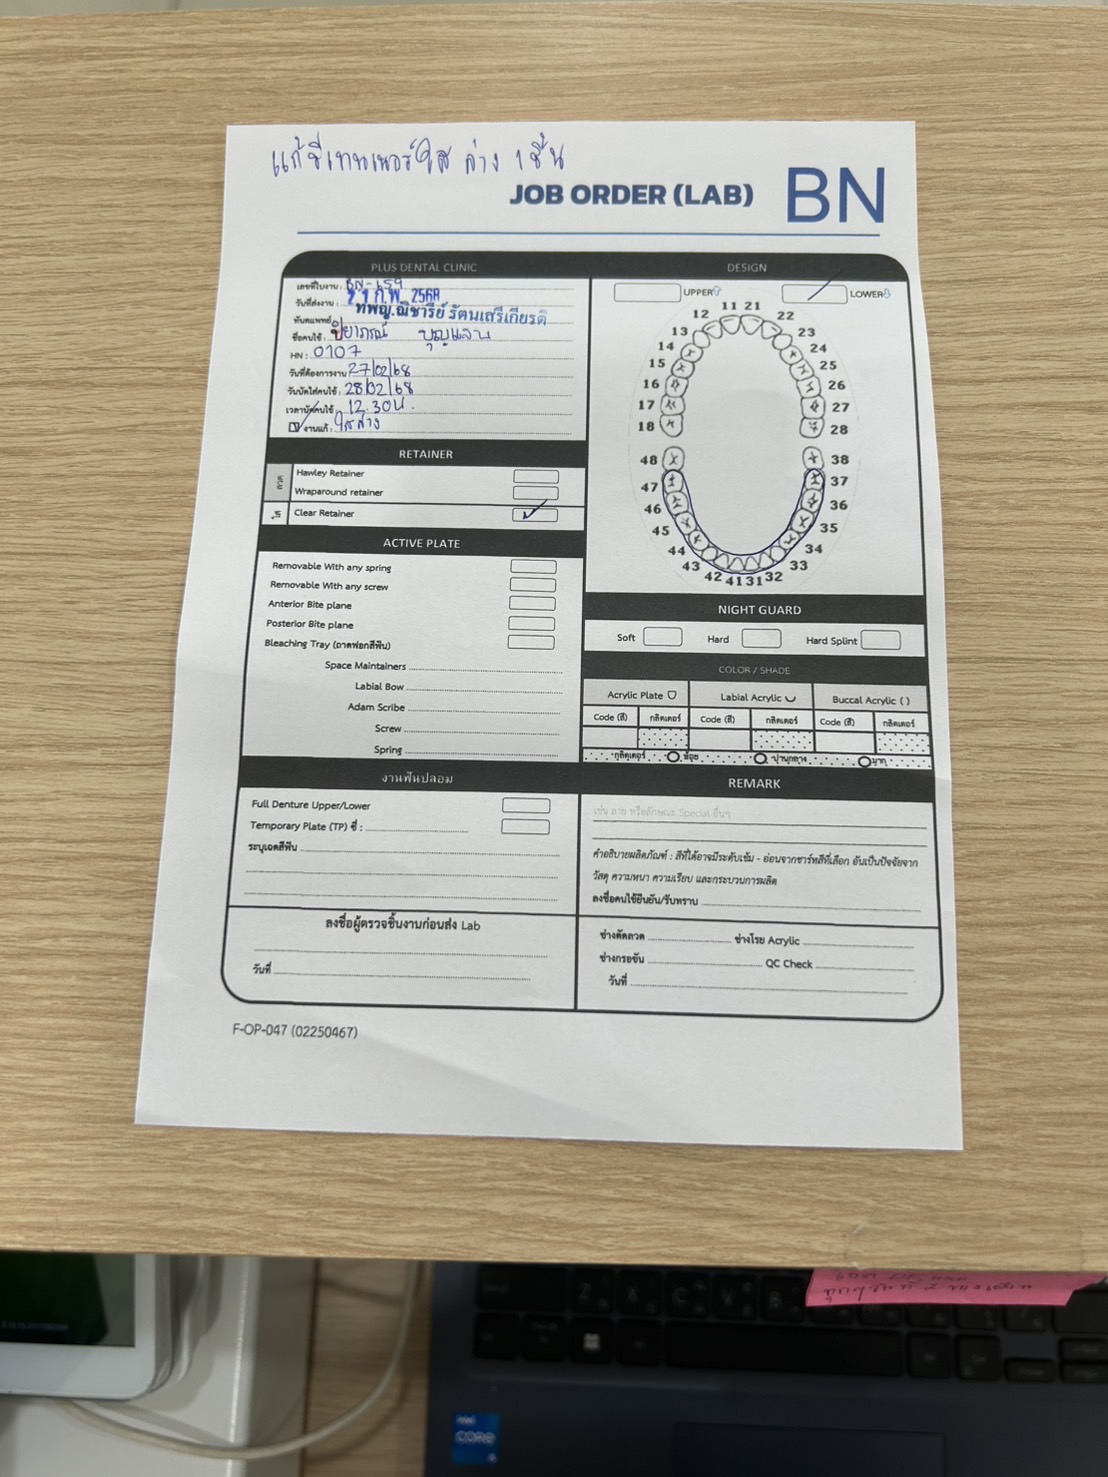 แก้รีเทนเนอร์ใส ล่าง 1 ชิ้น
JOB ORDER (LAB) BN
PLUS DENTAL CLINIC
เลขที่ใบงาน : BN-659
วันที่ส่งงาน : 21 ก.พ. 2568
ทันตแพทย์ ทพญ.ณิชารีย์ รัตนเสรีเกียรติ
ชื่อคนไข้ : ปิยาภรณ์ บุญแลน
HN : 0107
วันที่ต้องการงาน 27/02/68
วันนัดใส่คนไข้ : 28/02/68
เวลานัดคนไข้ : 12.30น.
งานแก้ : ใสล่าง
RETAINER
ลวด
Hawley Retainer
Wraparound retainer
ใส
Clear Retainer
ACTIVE PLATE
Removable With any spring
Removable With any screw
Anterior Bite plane
Posterior Bite plane
Bleaching Tray (ถาดฟอกสีฟัน)
Space Maintainers
Labial Bow
Adam Scribe
Screw
Spring
งานฟันปลอม
Full Denture Upper/Lower
Temporary Plate (TP) ซี่ :
ระบุเฉดสีฟัน
ลงชื่อผู้ตรวจชิ้นงานก่อนส่ง Lab
วันที่
DESIGN
UPPER LOWER
11 21
12 22
13 23
14 24
15 25
16 26
17 27
18 28
48 38
47 37
46 36
45 35
44 34
43 33
42 41 31 32
NIGHT GUARD
Soft Hard Hard Splint
COLOR / SHADE
Acrylic Plate Labial Acrylic Buccal Acrylic ( )
Code (สี) กลิตเตอร์ Code (สี) กลิตเตอร์ Code (สี) กลิตเตอร์
กลิตเตอร์ น้อย ปานกลาง มาก
REMARK
เช่น ลาย หรือลักษณะ Special อื่นๆ
คำอธิบายผลิตภัณฑ์ : สีที่ได้อาจมีระดับเข้ม - อ่อนจากชาร์ทสีที่เลือก อันเป็นปัจจัยจาก
วัสดุ ความหนา ความเรียบ และกระบวนการผลิต
ลงชื่อคนไข้ยืนยัน/รับทราบ
ช่างดัดลวด ช่างโรย Acrylic
ช่างกรอขัน QC Check
วันที่
F-OP-047 (02250467)
intel
CORE